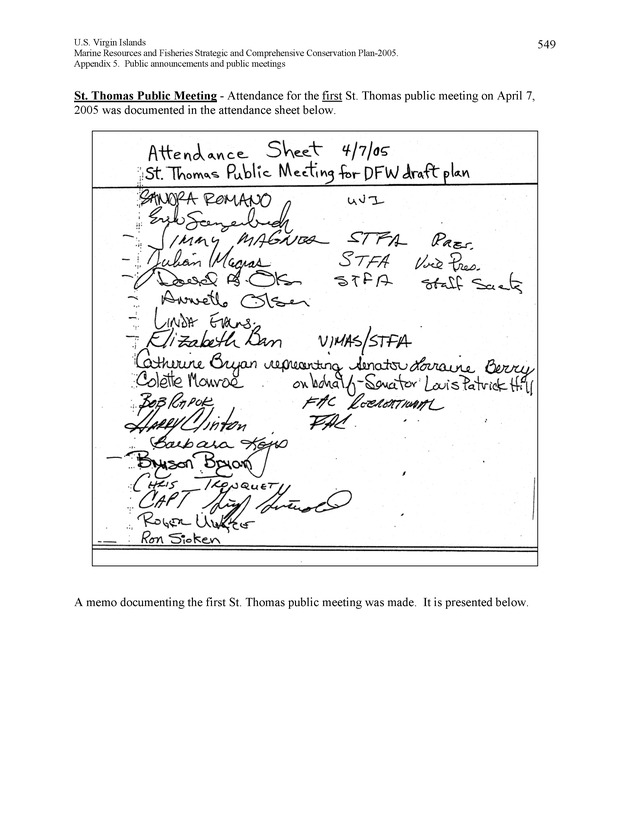 U.S. Virgin Islands
Marine Resources and Fisheries Strategic and Comprehensive Conservation Plan-2005.
Appendix 5.  Public announcements and public meetings
549
St. Thomas Public Meeting - Attendance for the first St. Thomas public meeting on April 7,
2005 was documented in the attendance sheet below.
Attendance Sheet 4/7/05
St. Thomas Public Meeting for DFW draft plan
SANDRA ROMANO UVI
JIMMY MAGNER STFA Pres.
Julian Magras STFA Vice Pres.
David STFA Staff
Annette Olsen
LINDA Evans
Elizabeth Ban VIMAS/STFA
Catherine Bryan representing Senator Lorraine Berry
Colette Monroe on behalf - Senator Louis Patrick Hill
BOB FAC RECREATIONAL
HARRY Clinton FAC
Barbara
Bryson Bryan
CHRIS
CAPT
ROGER
Ron Sioken
A memo documenting the first St. Thomas public meeting was made.  It is presented below.